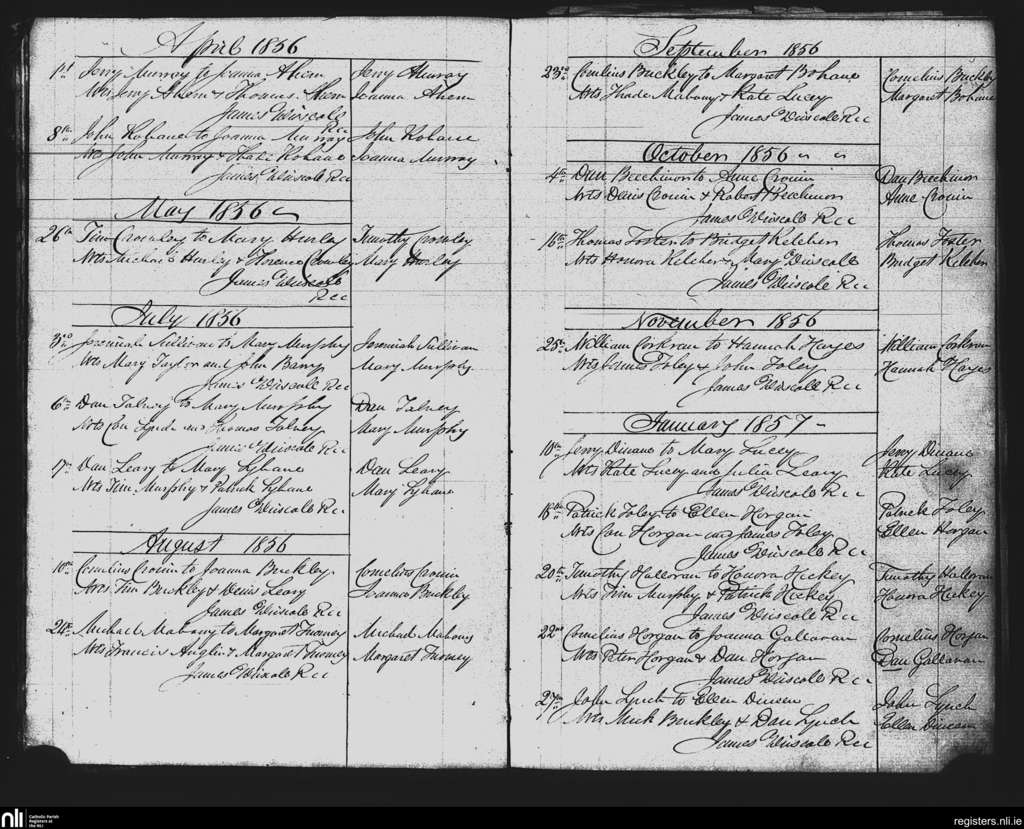 April 1856
1st Jerry Murray to Joanna Ahern
Jerry Murray
Wts Jerry Ahern & Thomas Ahern
Joanna Ahern
James O'Driscoll Rcc
8th John Kohane to Joanna Murray
John Kohane
Wts John Murray & Kohane
Joanna Murray
James O'Driscoll Rcc
May 1856
26th Tim Crowley to Mary Hurley
Timothy Crowley
Wts Michael Hurley & Florence Crowley
Mary Hurley
James O'Driscoll
Rcc
July 1856
3rd Jeremiah Sullivan to Mary Murphy
Jeremiah Sullivan
Wts Mary Taylor and John Barry
Mary Murphy
James O'Driscoll Rcc
6th Dan Talvey to Mary Murphy
Dan Talvey
Wts Con Lynch and Thomas Talvey
Mary Murphy
James O'Driscoll Rcc
17th Dan Leary to Mary Lyhane
Dan Leary
Wts Tim Murphy & Patrick Lyhane
Mary Lyhane
James O'Driscoll Rcc
August 1856
10th Cornelius Cronin to Joanna Buckley
Cornelius Cronin
Wts Tim Buckley & Denis Leary
Joanna Buckley
James O'Driscoll Rcc
24th Michael Mahony to Margaret Twomey
Michael Mahony
Wts Francis Anglin & Margaret Twomey
Margaret Twomey
James O'Driscoll Rcc
September 1856
23rd Cornelius Buckley to Margaret Bohane
Cornelius Buckley
Wts Thade Mahony & Kate Lucey
Margaret Bohane
James O'Driscoll Rcc
October 1856
4th Dan Beechinor to Anne Cronin
Dan Beechinor
Wts Denis Cronin & Robert Beechinor
Anne Cronin
James O'Driscoll Rcc
16th Thomas Foster to Bridget Kelcher
Thomas Foster
Wts Honora Kelcher & Mary O'Driscoll
Bridget Kelcher
James O'Driscoll Rcc
November 1856
25th William Corkran to Hannah Hayes
William Corkran
Wts James Foley & John Foley
Hannah Hayes
James O'Driscoll Rcc
January 1857
10th Jerry Dinane to Mary Lucey
Jerry Dinane
Wts Kate Lucey and Julia Leary
Kate Lucey
James O'Driscoll Rcc
18th Patrick Foley to Ellen Horgan
Patrick Foley
Wts Con Horgan and James Foley
Ellen Horgan
James O'Driscoll Rcc
20th Timothy Halloran to Honora Hickey
Timothy Halloran
Wts Tim Murphy & Patrick Hickey
Honora Hickey
James O'Driscoll Rcc
22nd Cornelius Horgan to Joanna Gallavan
Cornelius Horgan
Wts Peter Horgan & Dan Horgan
Dan Gallavan
James O'Driscoll Rcc
27th John Lynch to Ellen Dineen
John Lynch
Wts Mick Buckley & Dan Lynch
Ellen Dineen
James O'Driscoll Rcc
nli
Catholic Parish
Registers at
the NLI
registers.nli.ie